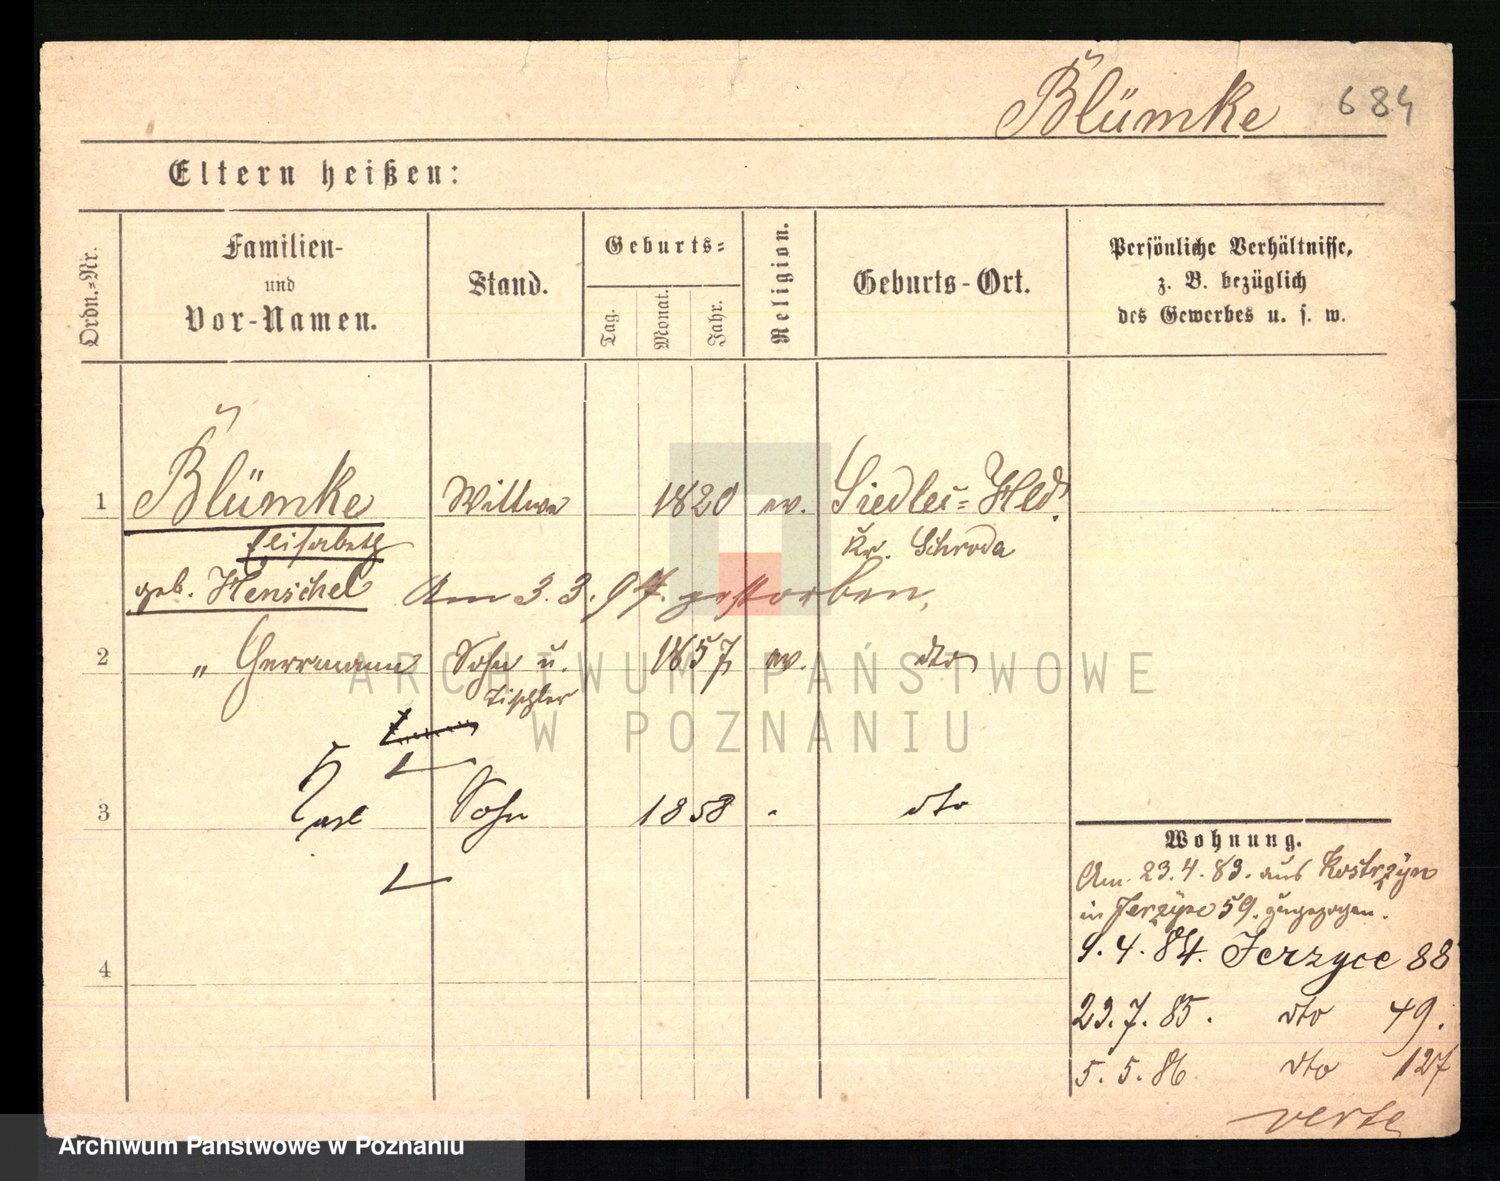 Blümke 684
Eltern heißen:
Ordn.-Nr.
Familien-
und
Vor-Namen.
Stand.
Geburts-
Tag.
Monat.
Jahr.
Religion.
Geburts-Ort.
Persönliche Verhältnisse,
z. B. bezüglich
des Gewerbes u. s. w.
1 Blümke Wittwe 1820 ev. Siedlec-Hld.
Elisabeth Kr. Schroda
geb. Henschel Am 3.3.97. gestorben,
2 " Herrmann Sohn u. 1857 ev. dto
Tischler
3 Karl Sohn 1858 " dto
4
Wohnung.
Am 23.4.83. aus Kostrzyn
in Jerzyce 59. zugezogen.
9.4.84. Jerzyce 88
23.7.85. dto 49.
5.5.86 dto 127
verte
ARCHIWUM PAŃSTWOWE
W POZNANIU
Archiwum Państwowe w Poznaniu